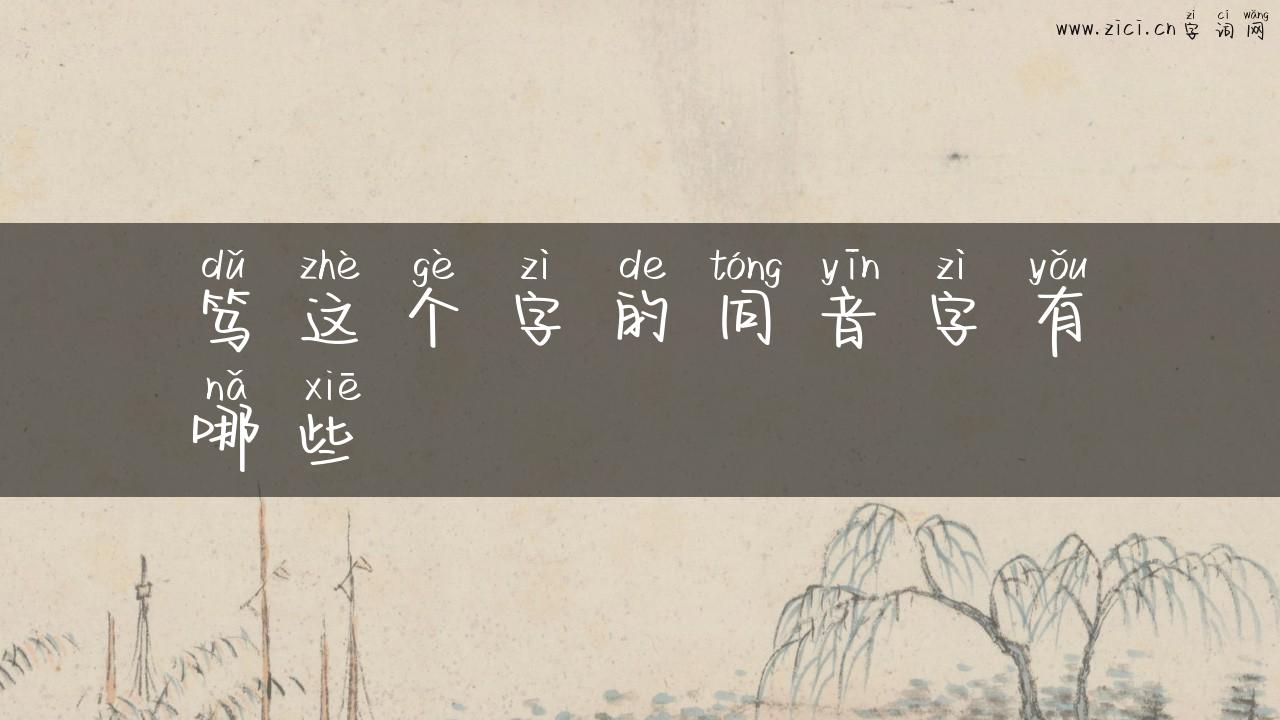 zì cí wǎng
www.zici.cn 字词网
dǔ zhè gè zì de tóng yīn zì yǒu
笃这个字的同音字有
nǎ xiē
哪些